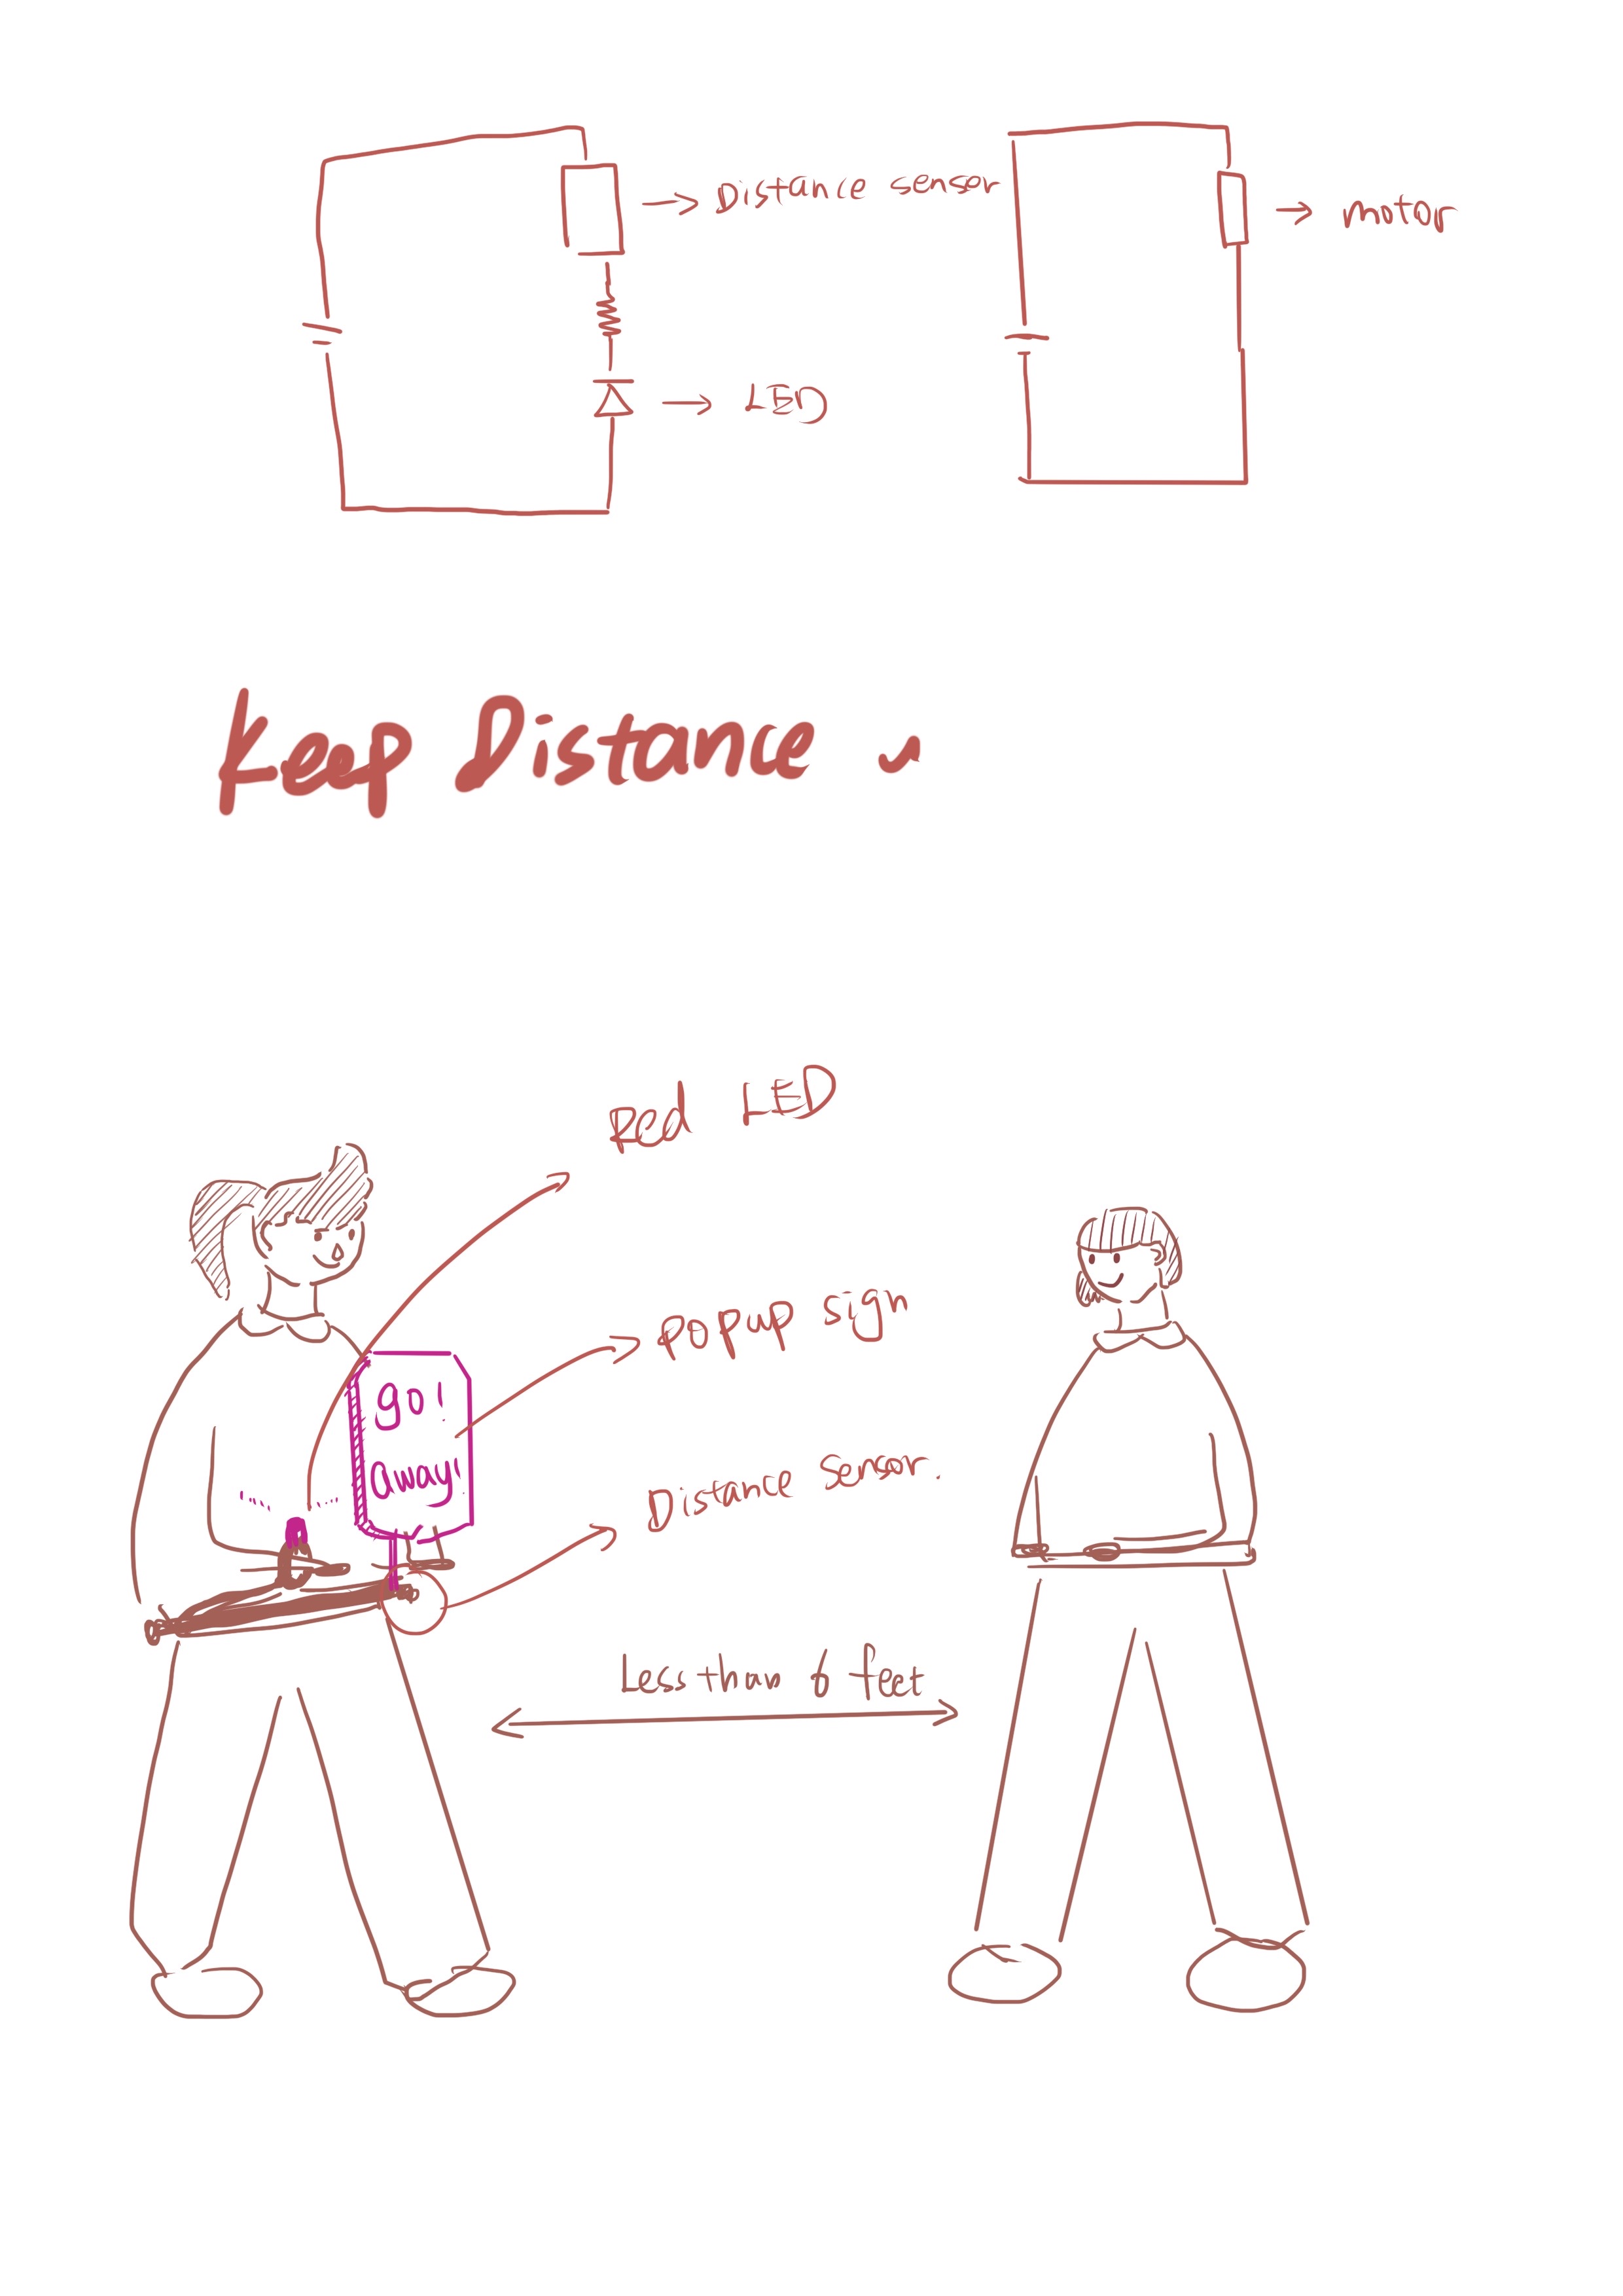 Distance sensor
motor
LED
Keep Distance
Red LED
Pop up sign
go!
away!
Distance Sensor.
Less than 6 feet